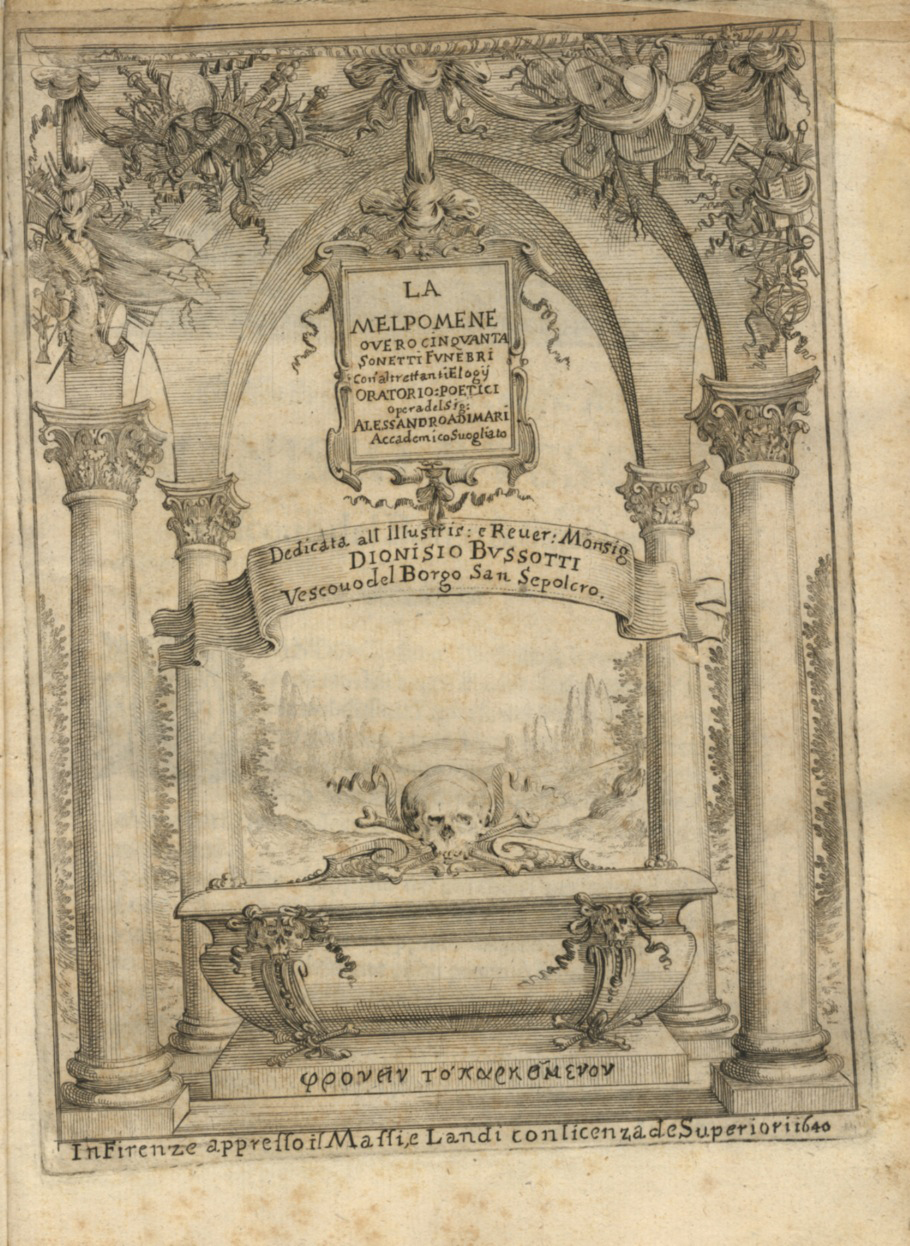 LA
MELPOMENE
OVERO CINQVANTA
SONETTI FVNEBRI
Con altrettanti Elogÿ
ORATORIO: POETICI
Opera del Sig:
ALESSANDRO ADIMARI
Accademico Suogliato
Dedicata all Illustris: e Reuer: Monsig
DIONISIO BVSSOTTI
Vescouo del Borgo San Sepolcro.
φρουεῖν τὸ παρκείμενον
In Firenze appresso il Massi, e Landi con licenza de Superiori 1640